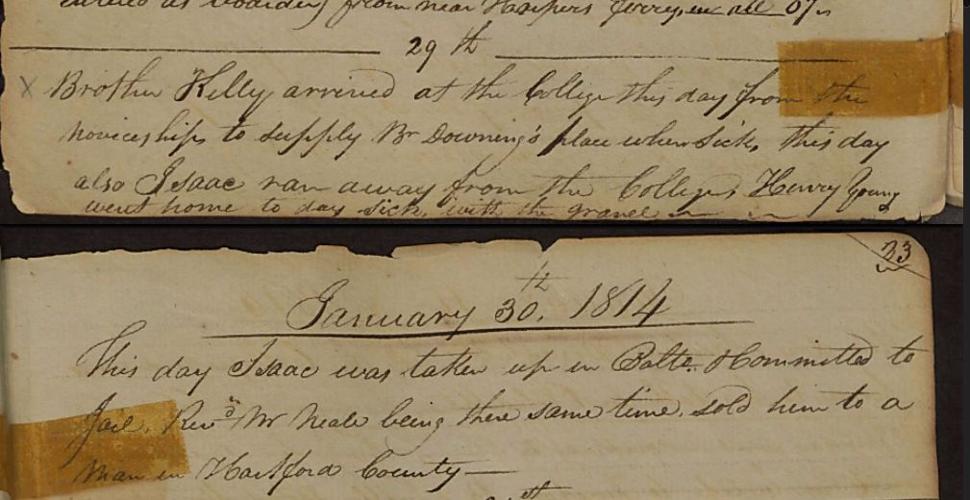 from near Harpers ferry, in all 67
29th
X Brother Kelly arrived at the College this day from the
noviceship to supply Br Downing's place when sick, this day
also Isaac ran away from the College, Henry Young
went home to day sick, with the gravel
33
January 30th. 1814
This day Isaac was taken up in Balte. & Committed to
Jail, Revd Mr Neale being there same time, sold him to a
man in Hartford County —
th